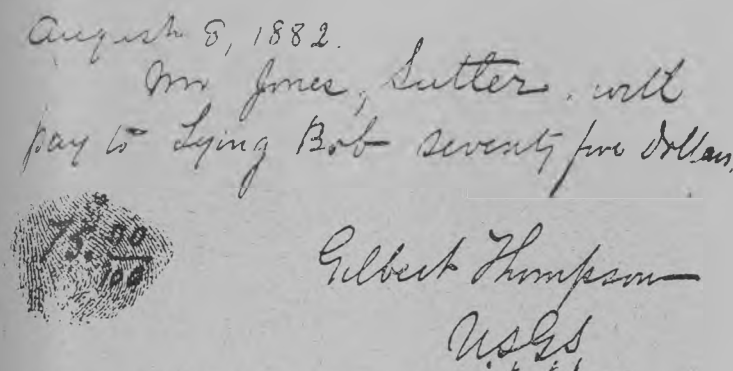 August 8, 1882.
Mr Jones, Sutler, will
pay to Lying Bob seventy five Dollars,
75.00/100
Gilbert Thompson
U.S.G.S